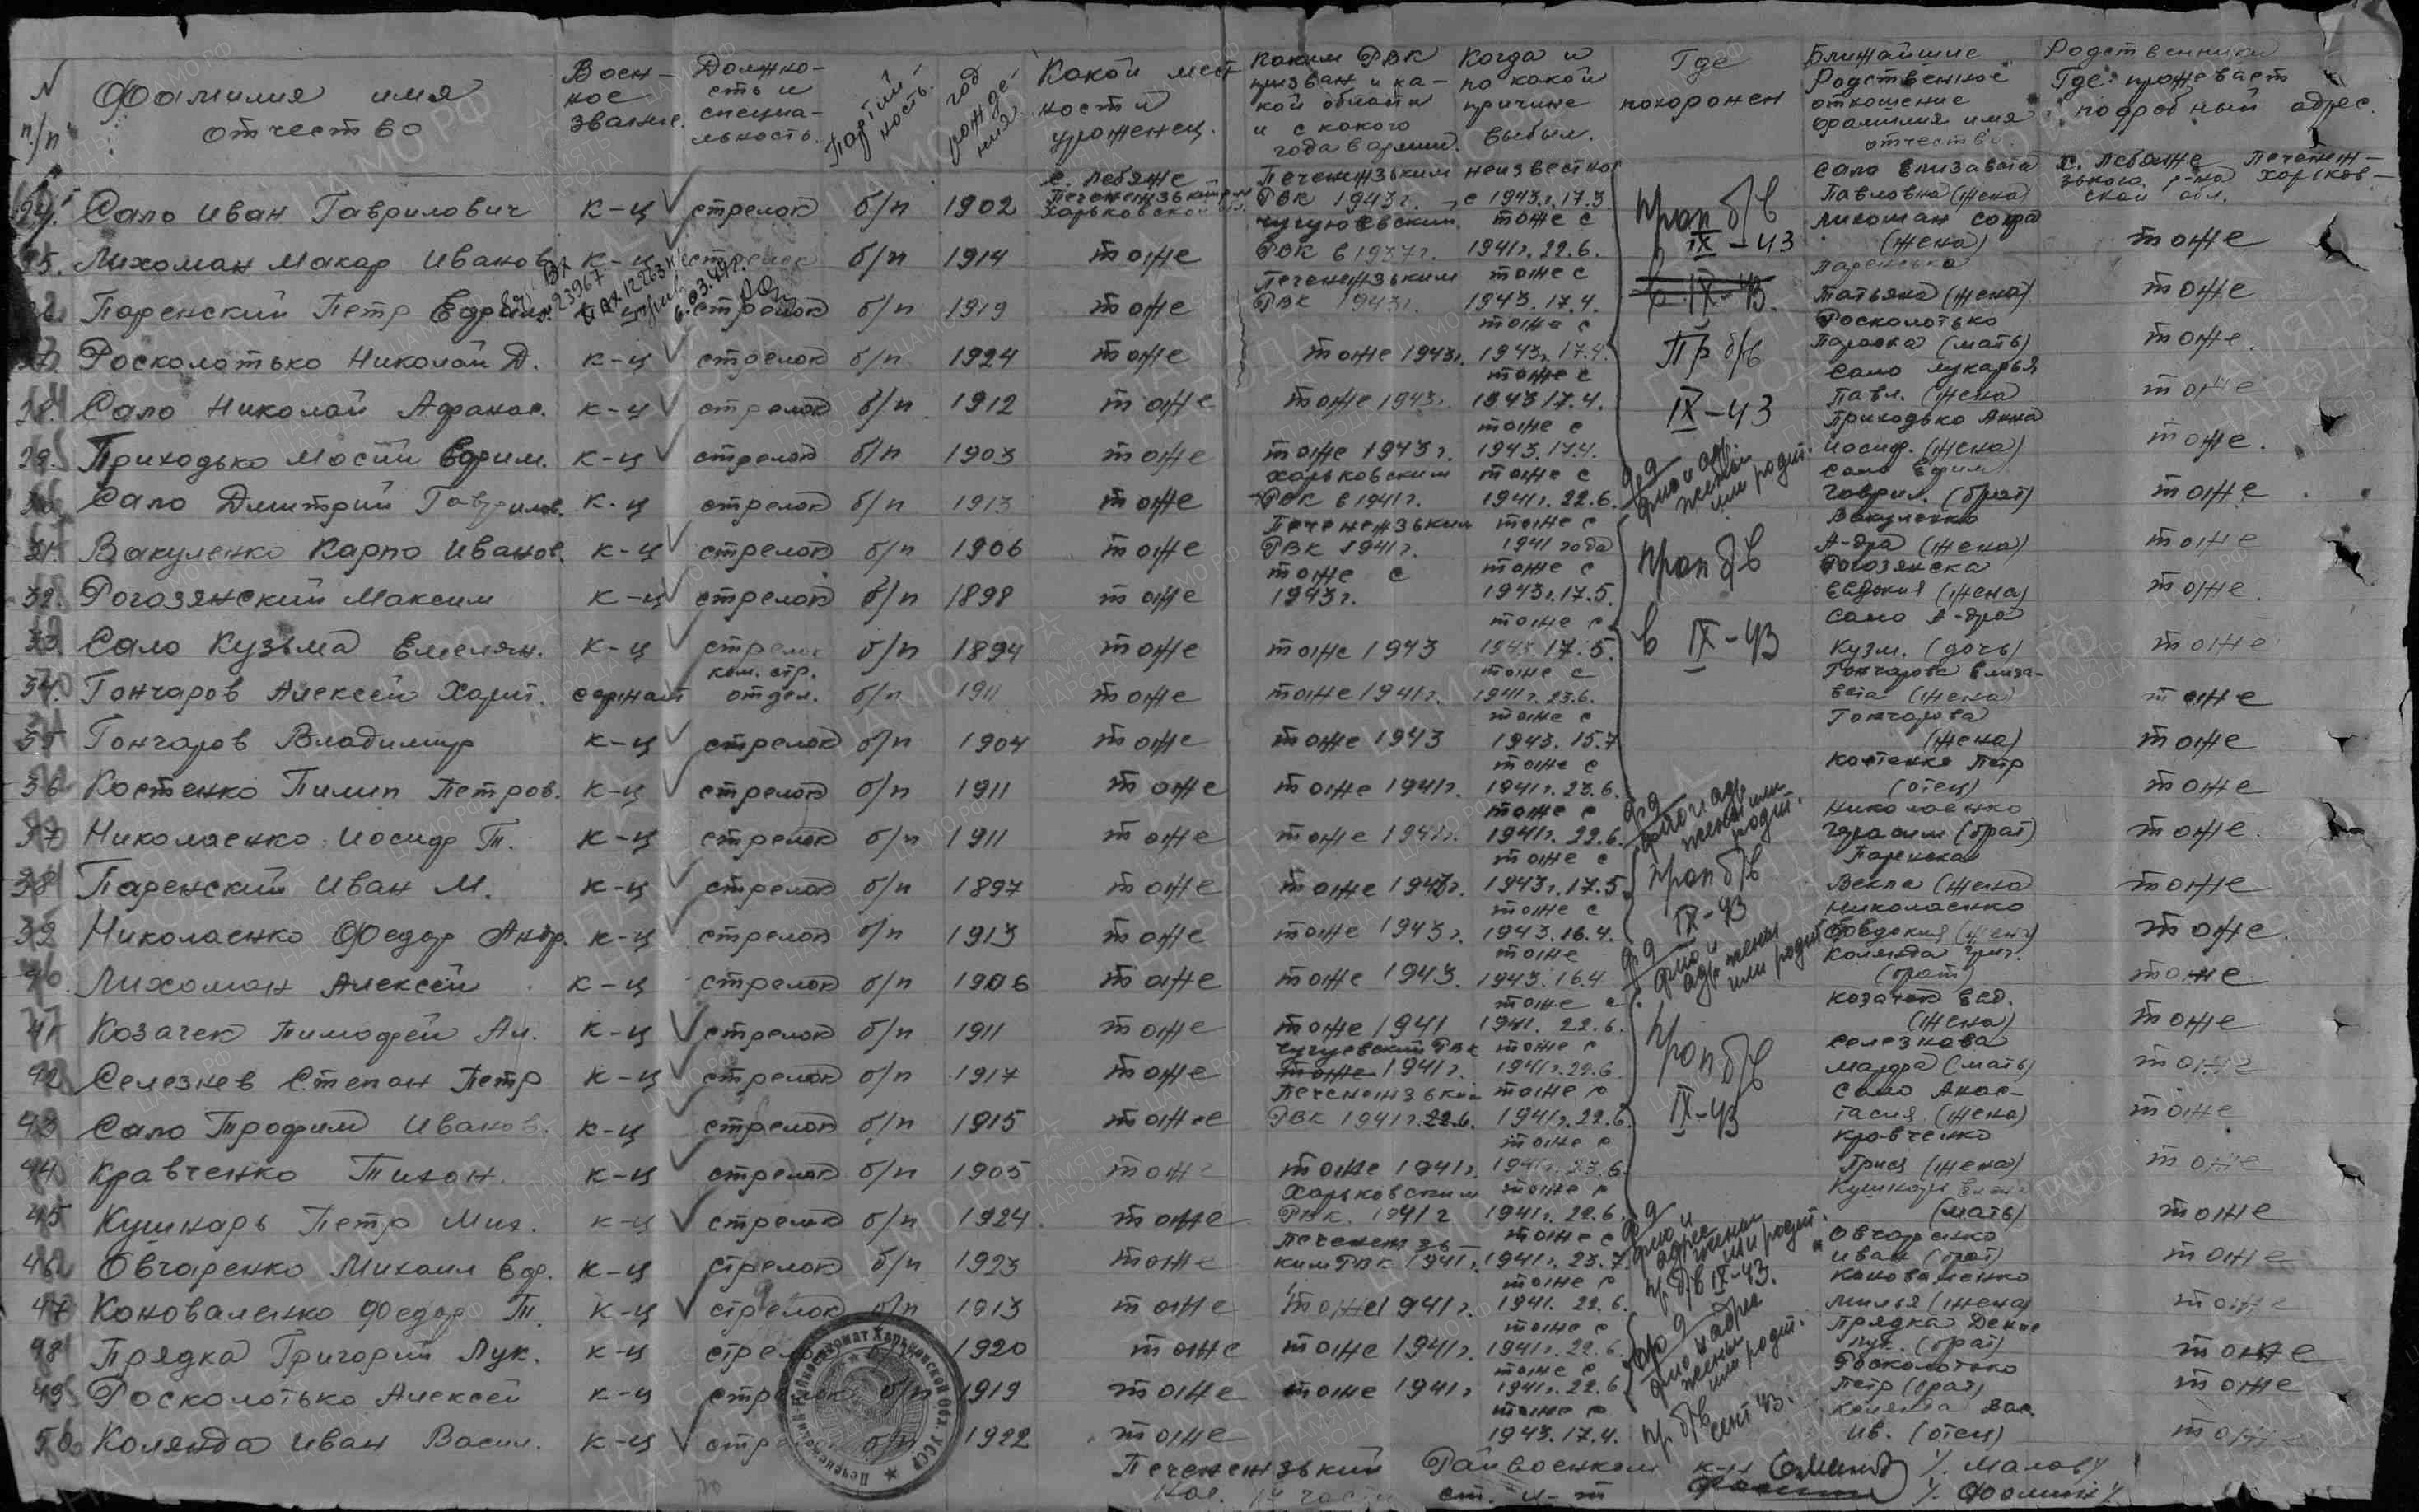 N п/п Фамилия имя отчество Воен-ное звание. Должно-сть и специа-льность. Партий-ность. год рожде-ния Какой мест-ности уроженец. Каким РВК призван и ка-кой области и с какого года в армии. Когда и по какой причине выбыл. Где похоронен Ближайшие Родственное отношение фамилия имя отчество. Родственники Где проживает подробный адрес.
Сало Иван Гаврилович к-ц стрелок б/п 1902 с. Лебяже Печенежский Харьковской Печенежзьким РВК 1943г. неизвестно с 1943г. 17.3. проп б/в IX-43 Сало Елизавета Павловна (жена) х. Лебяже Печенеж-зького р-на Харьков-ской обл.
Лихоман Макар Иванов. к-ц стрелок б/п 1914 тоже Чугуевским РВК в 1937г. тоже с 1941г. 22.6. Лихоман Софа (жена) тоже
Паренский Петр Ефрим. стрелок б/п 1919 тоже Печенежзьким РВК 1943г. тоже с 1943. 17.4. в IX-43. Паренська Татьяна (жена) тоже
Росколотько Николай Д. к-ц стрелок б/п 1924 тоже тоже 1943г. тоже с 1943г. 17.4. Пр б/в Росколотько Параска (мать) тоже.
28. Сало Николай Афанас. к-ц стрелок б/п 1912 тоже тоже 1943г. тоже с 1943 17.4. IX-43 Сало Лукарья Павл. (жена) тоже
29. Приходько Мосий Ефрим. к-ц стрелок б/п 1903 тоже тоже 1943г. тоже с 1943. 17.4. Приходько Анна Иосиф. (жена) тоже.
Сало Дмитрий Гаврилов. к-ц стрелок б/п 1913 тоже Харьковским РВК в 1941г. тоже с 1941г. 22.6. фио и адр. жены или родит. Сало Ефим Гаврил. (брат) тоже
31. Вакуленко Карпо Иванов. к-ц стрелок б/п 1906 тоже Печенежзьким РВК 1941г. тоже с 1941 года проп б/в Вакуленко А-дра (жена) тоже
32. Рогозянский Максим к-ц стрелок б/п 1898 тоже тоже с 1943г. тоже с 1943г. 17.5. Рогозянска Евдокия (жена) тоже.
33. Сало Кузьма Емелян. к-ц стрелок б/п 1894 тоже тоже 1943 тоже с 17.5. в IX-43 Сало А-дра Кузм. (дочь) тоже
34. Гончаров Алексей Харит. сержант ком. стр. отдел. б/п 1911 тоже тоже 1941г. тоже с 1941г. 23.6. Гончарова Елиза-вета (жена) тоже
35 Гончаров Владимир к-ц стрелок б/п 1904 тоже тоже 1943 тоже с 1943. 15.7 Гончарова (жена) тоже
36 Костенко Пилип Петров. к-ц стрелок б/п 1911 тоже тоже 1941г. тоже с 1941г. 23.6. Костенко Петр (отец) тоже
37 Николаенко Иосиф Т. к-ц стрелок б/п 1911 тоже тоже 1941г. тоже с 1941г. 22.6. жены или родит. Николаенко Герасим (брат) тоже.
38 Паренский Иван М. к-ц стрелок б/п 1897 тоже тоже 1943г. тоже с 1943г. 17.5. проп б/в IX-43 Паренская Векла (жена) тоже
39 Николаенко Федор Андр. к-ц стрелок б/п 1913 тоже тоже 1943г. тоже с 1943. 16.4. Николаенко (жена) тоже.
40. Лихоман Алексей к-ц стрелок б/п 1906 тоже тоже 1943. тоже 1943. 16.4 фио и адр жены или родит. Колянда Григ. (брат) тоже
41 Козачек Тимофей Ал. к-ц стрелок б/п 1911 тоже тоже 1941 тоже с 1941. 22.6. проп б/в IX-43 Козачек Евд. (жена) тоже
42 Селезнев Степан Петр к-ц стрелок б/п 1917 тоже Чугуевский РВК тоже 1941г. тоже с 1941г. 22.6. Селезнова Марфа (мать) тоже
43 Сало Трофим Иванов. к-ц стрелок б/п 1915 тоже Печенежзький РВК 1941г. 22.6. тоже с 1941г. 22.6. Сало Анас-тасия (жена) тоже
44 Кравченко Тихон. к-ц стрелок б/п 1905 тоже тоже 1941г. тоже с 1941г. 23.6. Кравченко Прися (жена) тоже
45 Кушнарь Петр Мих. к-ц стрелок б/п 1924. тоже Харьковским РВК. 1941г тоже с 1941г. 22.6. Кушнарь (мать) тоже
46 Овчаренко Михаил Еф. к-ц стрелок б/п 1923 тоже Печенежзь-ким РВК 1941г. тоже с 1941г. 23.7. фио и адрес жены или родит. пр. б/в IX-43. Овчаренко Иван (брат) тоже
47 Коноваленко Федор Т. к-ц стрелок б/п 1913 тоже тоже 1941г. тоже с 1941. 22.6. Коноваленко (жена) тоже
48 Прядка Григорий Лук. к-ц стрелок 1920 тоже тоже 1941г. тоже с 1941г. 22.6. фио и адрес жены или родит. Прядка Денис Лук. (брат) тоже
49 Росколотько Алексей к-ц стрелок б/п 1919 тоже тоже 1941г тоже с 1941г. 22.6 Росколотько Петр (брат) тоже
50 Колянда Иван Васил. к-ц б/п 1922 тоже тоже с 1943. 17.4. пр. б/в сент 43. Колянда Вас. Ив. (отец) тоже
Печенежзький Райвоенком к-н /Малов/
Нач. 1й части ст. л-т /Фомин/
Печенежский Райвоенкомат Харьковской Обл. УССР
ЦАМО РФ
ПАМЯТЬ НАРОДА